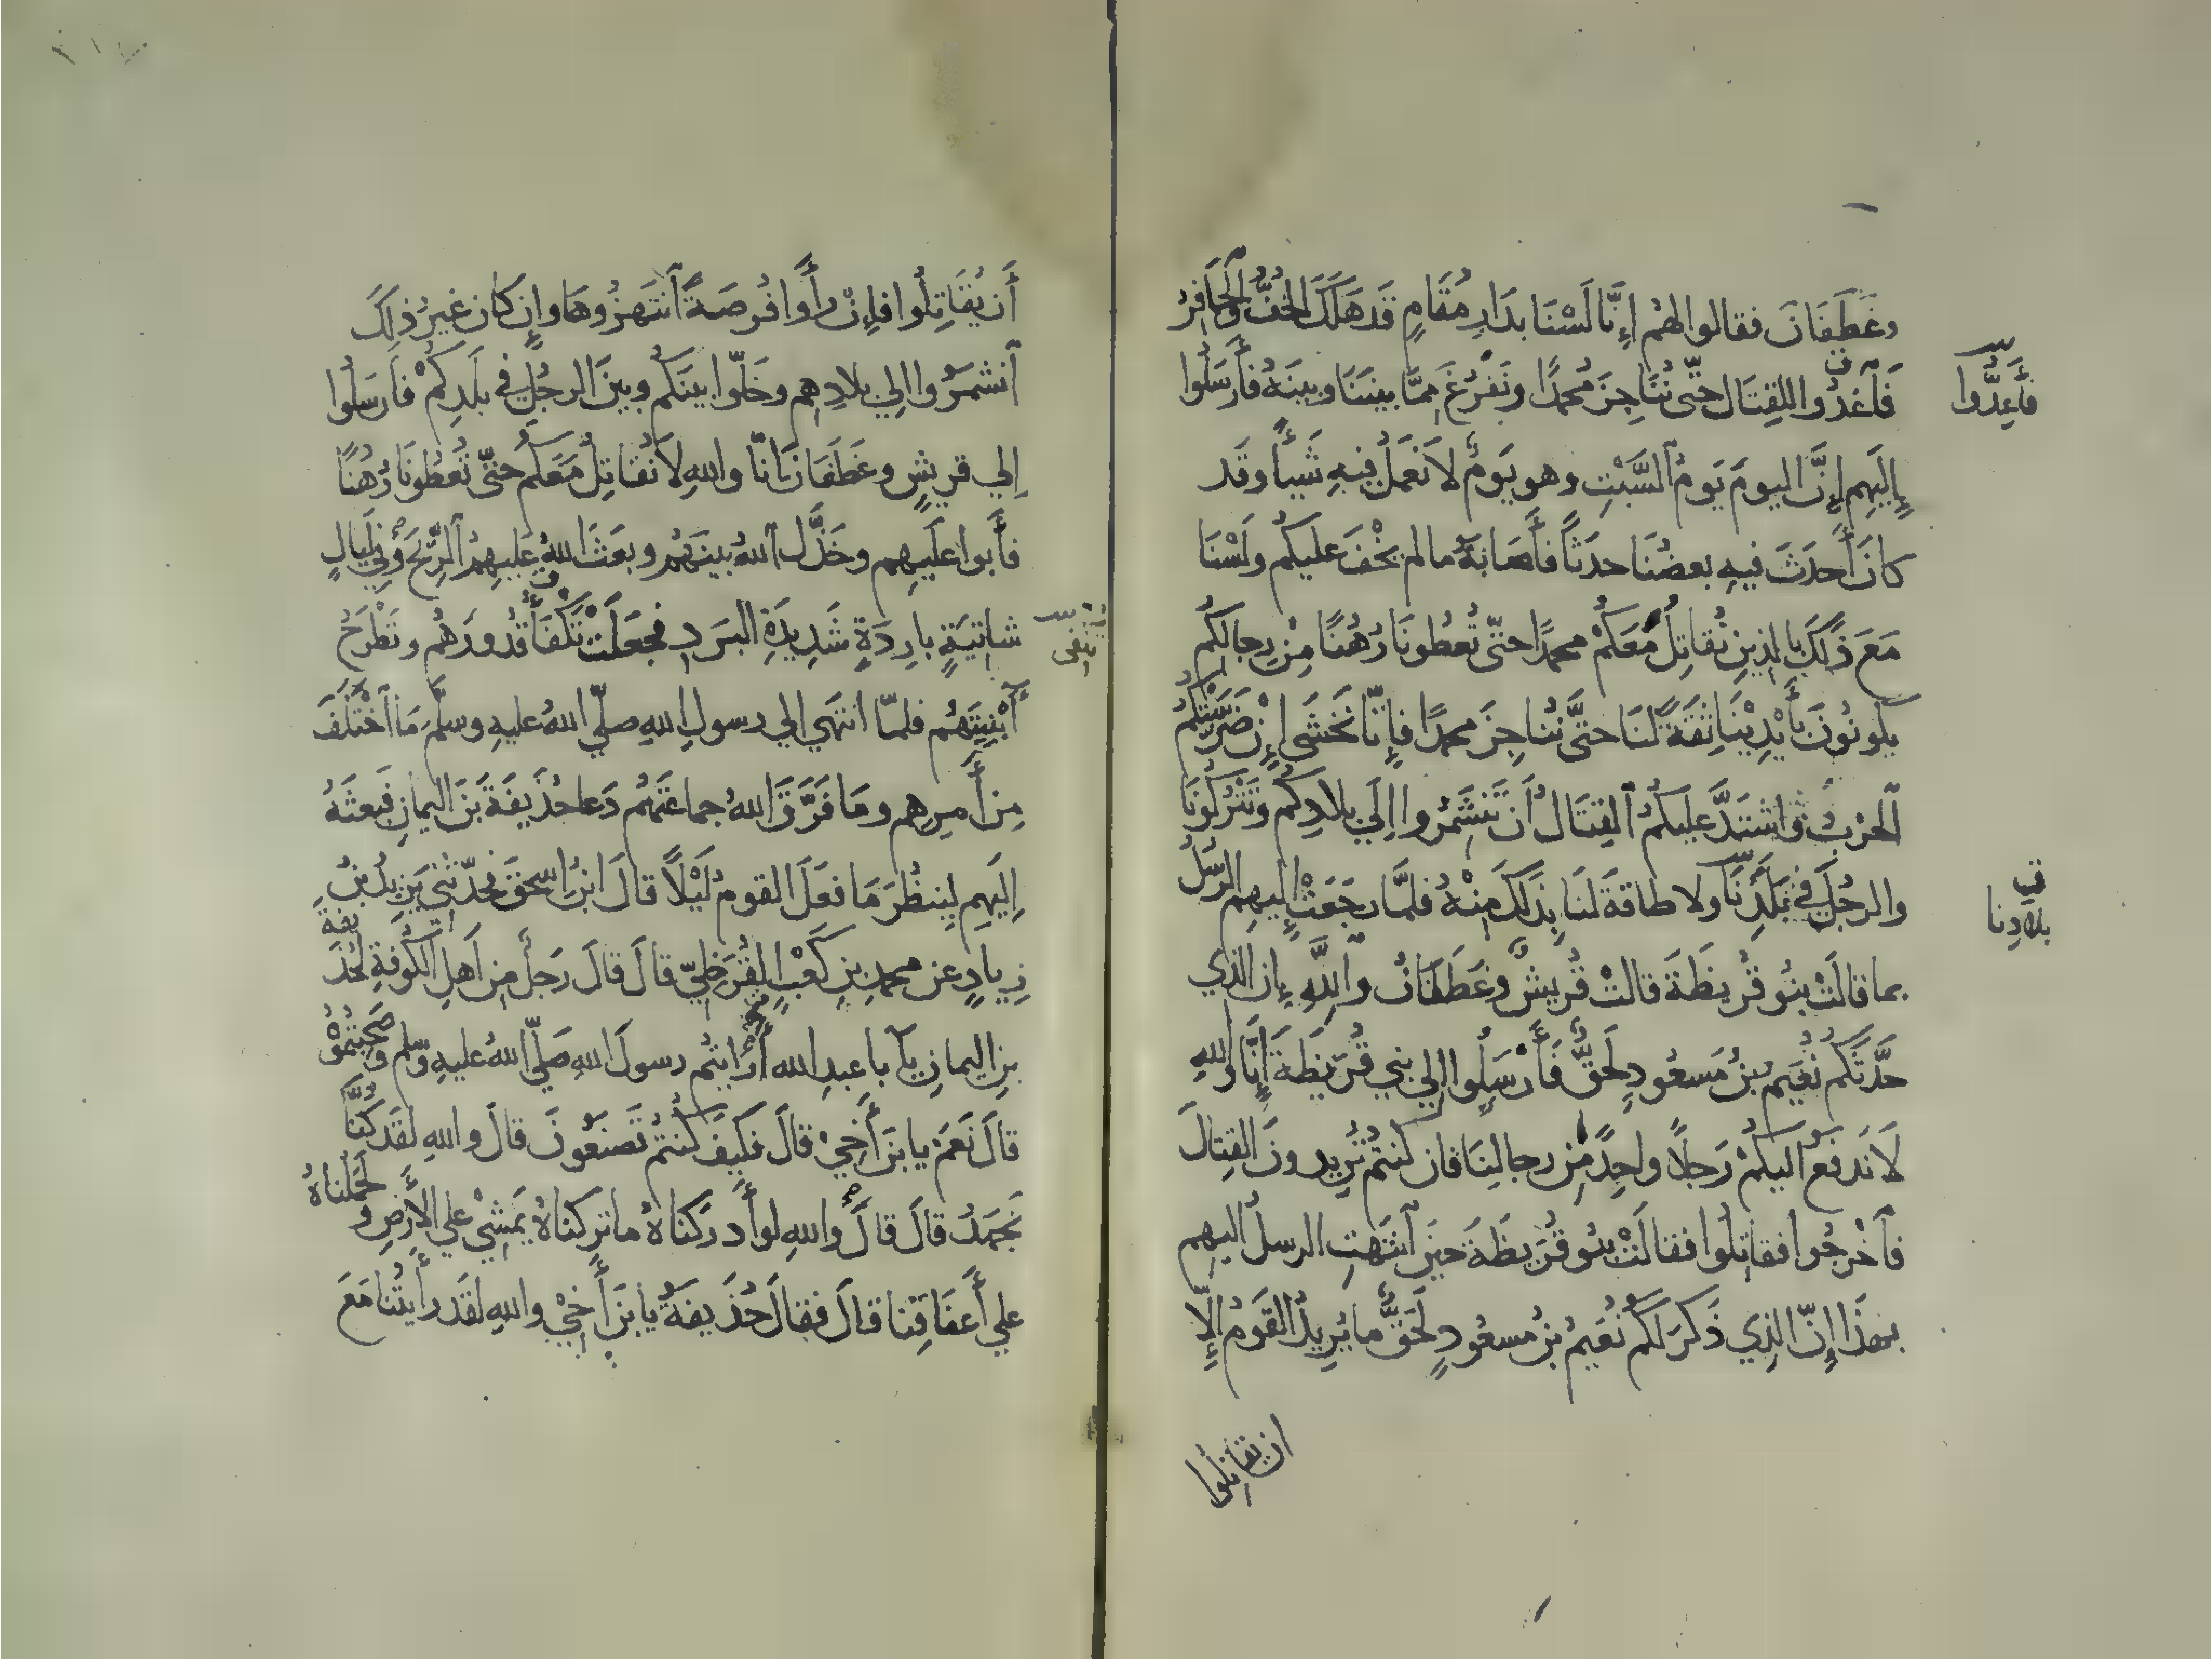 وغَطَفَانَ فقالوا لهُم إنَّا لَسْنَا بدَارِ مُقَامٍ قَد هَلَكَ الخُفُّ والحَافِرُ
فَٱغْدُوا للقِتَال حتّى نُنَاجِزَ مُحمدًا ونَفْرُغَ مِمَّا بينَنَا وبينَهُ فأَرسَلُوا
فأَعِدُّوا
إلَيهِم إنَّ اليومَ يَومُ ٱلسَّبْتِ وهو يَومٌ لا نَعمَلُ فيهِ شَيئًا وقَد
كانَ أَحدَثَ فيهِ بعضُنَا حدَثًا فأَصَابَهُ ما لم يَخْفَ عليكُم ولَسْنَا
مَعَ ذَلكَ بالذينِ نُقاتِلُ مَعَكُمْ محمدًا حتّى تُعطُونَا رُهُنًا مِن رِجالِكُم
يكُونُونَ بأَيْدِيْنَا ثِقَةً لنَا حتَّى نُنَاجِزَ محمدًا فإِنّا نَخشَى إن ضَرَّسَتْكُمُ
ٱلحَربُ وٱشتَدَّ عليكُمُ ٱلقِتَالُ أَن تَنشَمِرُوا إِلَي بلادِكُم وتَتْرُكُونَا
والرجُلَ في بَلَدِنَا ولا طاقةَ لنَا بِذَلكَ مِنْهُ فلمَّا رجَعَتْ إليهِم الرُّسُلُ
في بلادِنا
بما قالَتْ بنُو قُريظَةَ قالتْ قُريشٌ وغَطَفَانُ واللَّهِ إن الذي
حدَّثَكُم نُعَيمُ بنُ مَسعُودٍ لَحَقٌّ فَأَرْسَلُوا إلي بني قُرَيظَةَ إِنَّا واللهِ
لَا نَدفعُ اليكُمْ رَجلًا واحِدًا مِن رجالِنَا فان كنتُم تُرِيدونَ القِتالَ
فَٱخْرجُوا فقاتِلُوا فقالَتْ بنُو قُرَيظَةَ حينَ ٱنتَهتِ الرسلُ اليهِم
بهذَا إِنَّ الذِي ذَكرَ لَكُم نُعَيمُ بنُ مسعُودٍ لَحَقٌّ ما يُرِيدُ القَومُ إلّا
ان يقاتِلُوا
أَن يُقَاتِلُوا فإِنْ رأَوا فُرصَةً ٱنتَهزُوهَا وإن كان غيرُ ذلِكَ
ٱنشمَرُوا إلي بلادِهِم وخَلّوا بينَكُم وبينَ الرجُلِ في بلَدِكُمْ فأَرسَلُوا
إلي قريشٍ وغَطَفَانَ إنّا واللهِ لا نُقاتِلُ مَعَكُم حتّى تُعطُونَا رُهُنًا
فأَبوا علَيهِم وخَذَّلَ ٱللهُ بينَهُم وبعَثَ اللهُ عليهِمُ ٱلرِّيحَ في لَيالٍ
شاتِيَةٍ بارِدَةٍ شَدِيدَةِ البَردِ فجعَلَتْ تَكْفَأُ قُدُورَهُم وتَطْرَحُ
أَبْنِيَتَهُم فلمّا انتهَي إلي رسولِ اللهِ صلّي اللهُ عليهِ وسلَّمَ مَا ٱخْتَلَفَ
مِن أَمرِهِم ومَا فَرَّقَ اللهُ جماعَتَهُم دَعا حُذَيفَةَ بنَ اليمانِ فبعثَهُ
إلَيهِم لِيَنظُرَ مَا فعَلَ القومُ لَيْلًا قالَ ابنُ اسحقَ فحدّثني يَزِيدُ بنُ
زِيادٍ عن محمدِ بنِ كَعْبٍ القُرَظِيّ قالَ قالَ رَجلٌ مِن أهلِ الكُوفةِ لحُذَيفةَ
بنِ اليمانِ يا أبا عبدِ الله أَرأَيتُم رسولَ اللهِ صَلّي اللهُ عليهِ وسلم وصَحِبتُمُوْهُ
قالَ نَعَمْ يا بنَ أَخِيْ قالَ فكَيفَ كُنتُم تَصنَعُونَ قالَ واللهِ لقَد كُنّا
نَجهَدُ قالَ قالَ واللهِ لو أَدرَكنَاهُ ما تركنَاهُ يَمشِيْ علي الأَرضِ ولحَمَلْناهُ
علي أَعنَاقِنا قالَ فقالَ حُذَيفةُ يا بنَ أَخِيْ واللهِ لقَد رأَيتُنا مَعَ